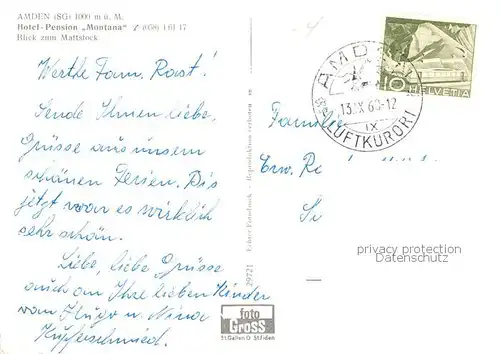 AMDEN (SG) 1000 m ü. M.
Hotel-Pension „Montana" (058) 4 61 17
Blick zum Mattstock
Werthe Fam. Rast!
Sende Ihnen liebe,
Grüsse aus unsern
schönen Ferien. Bis
jetzt war es wirklich
sehr schön.
Liebe, liebe Grüsse
auch an Ihre lieben Kinder
von Hugo u. Nina
Kupferschmied.
29721
foto
GROSS
St.Gallen O St.Fiden
10 HELVETIA
AMDEN
13.IX.60-12
IX
LUFTKURORT
Familie
Erw.
privacy protection
Datenschutz